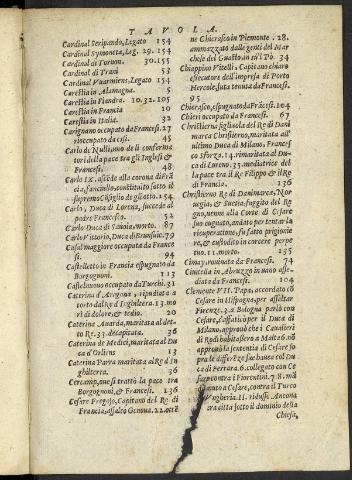 TAVOLA.
Cardinal Seripando, Legato 154
Cardinal Symoneta, Leg. 29. 154
Cardinal di Tornon. 30. 155
Cardinal di Trani 53
Cardinal Vuarmiens, Legato 154
Carestia in Alamagna. 5
Carestia in Fiandra. 10. 32. 105
Carestia in Francia 10
Carestia in Italia. 32
Carignano occupato da Francesi. 27
rioccupato da cesi. 45
Carlo de Nulli, uno de li conferma
tori della pace tra gli Inglesi &
Francesi. 48
Carlo IX. ascēde alla corona di Frā
cia, fanciullo, constituito sotto il
supremo Cōsiglio de gli otto. 154
Carlo, Duca di Lorena, succede al
padre Francesco. 52
Carlo Duca di Savoia, morto. 87
Carlo Vittorio, Duca di Brunsuic. 79
Casal maggiore occupato da France
si. 94
Castelletto in Francia espugnato da
Borgognoni. 113
Castelnuovo occupato da Turchi. 31
Caterina d'Aragona, ripudiata a
torto dal Re d'Inghilterra. 13. mo
rì di dolore, & tedio. 20
Caterina Auarda, maritata al det-
to Re. 33. decapitata. 36
Caterina de Medici, maritata al Du
ca d'Orliens 13
Caterina Parra maritata al Re d'In
ghilterra. 36
Cercamp, oue si trattò la pace tra
Borgognoni, & Francesi. 136
Cesare Fregoso, Capitano del Re di
Francia, assalta Genoua. 22. ottē
ne Chierasco in Piemonte. 28.
ammazzato dalle genti del Mar
chese del Guasto, in su'l Pò. 34
Chiappino Vitelli, Capitano chiaro
essecutore dell'impresa di Porto
Hercole, suta tenuta da Francesi.
95
Chierasco, espugnato da Frācesi. 104
Chieri occupato da Francesi. 67
Christierna figliuola del Re di Dani
marca Christierno, maritata all'
ultimo Duca di Milano, Francef
co Sforza. 14. rimaritata al Du-
ca di Lorena. 35. mediatrice del
la pace tra il Re Filippo & il Re
di Francia. 136
Christierno Re di Danimarca, Nor
uegia, & Suetia, fuggito del Re
gno, uenne alla Corte di Cesare
suo cognato, andato per tentar la
ricuperatione, fu fatto prigionie
re, & custodito in carcere perpe
tuo. 11. morto. 135
Cimay rouinata da Francesi. 74
Ciuitella in Abruzzo in uano asse-
diata da Francesi. 104
Clemente VII. Papa, accordato cō
Cesare in Hispagna, per assaltar
Firenze. 3. a Bologna parlò con
Cesare, l'assaticò per il Duca di
Milano, approuò che i Cavalieri
di Rodi habitassero a Malta 6. nō
approuò la sententia di Cesare so
pra le differēze sue hauute col Du
ca di Ferrara. 6. collegato con Ce
sare contra i Fiorentini. 7. 8.
aiuto a Cesare, contra il Turco
Vngheria. 11. ridusse Ancona
città sotto il dominio della
Chiesa,